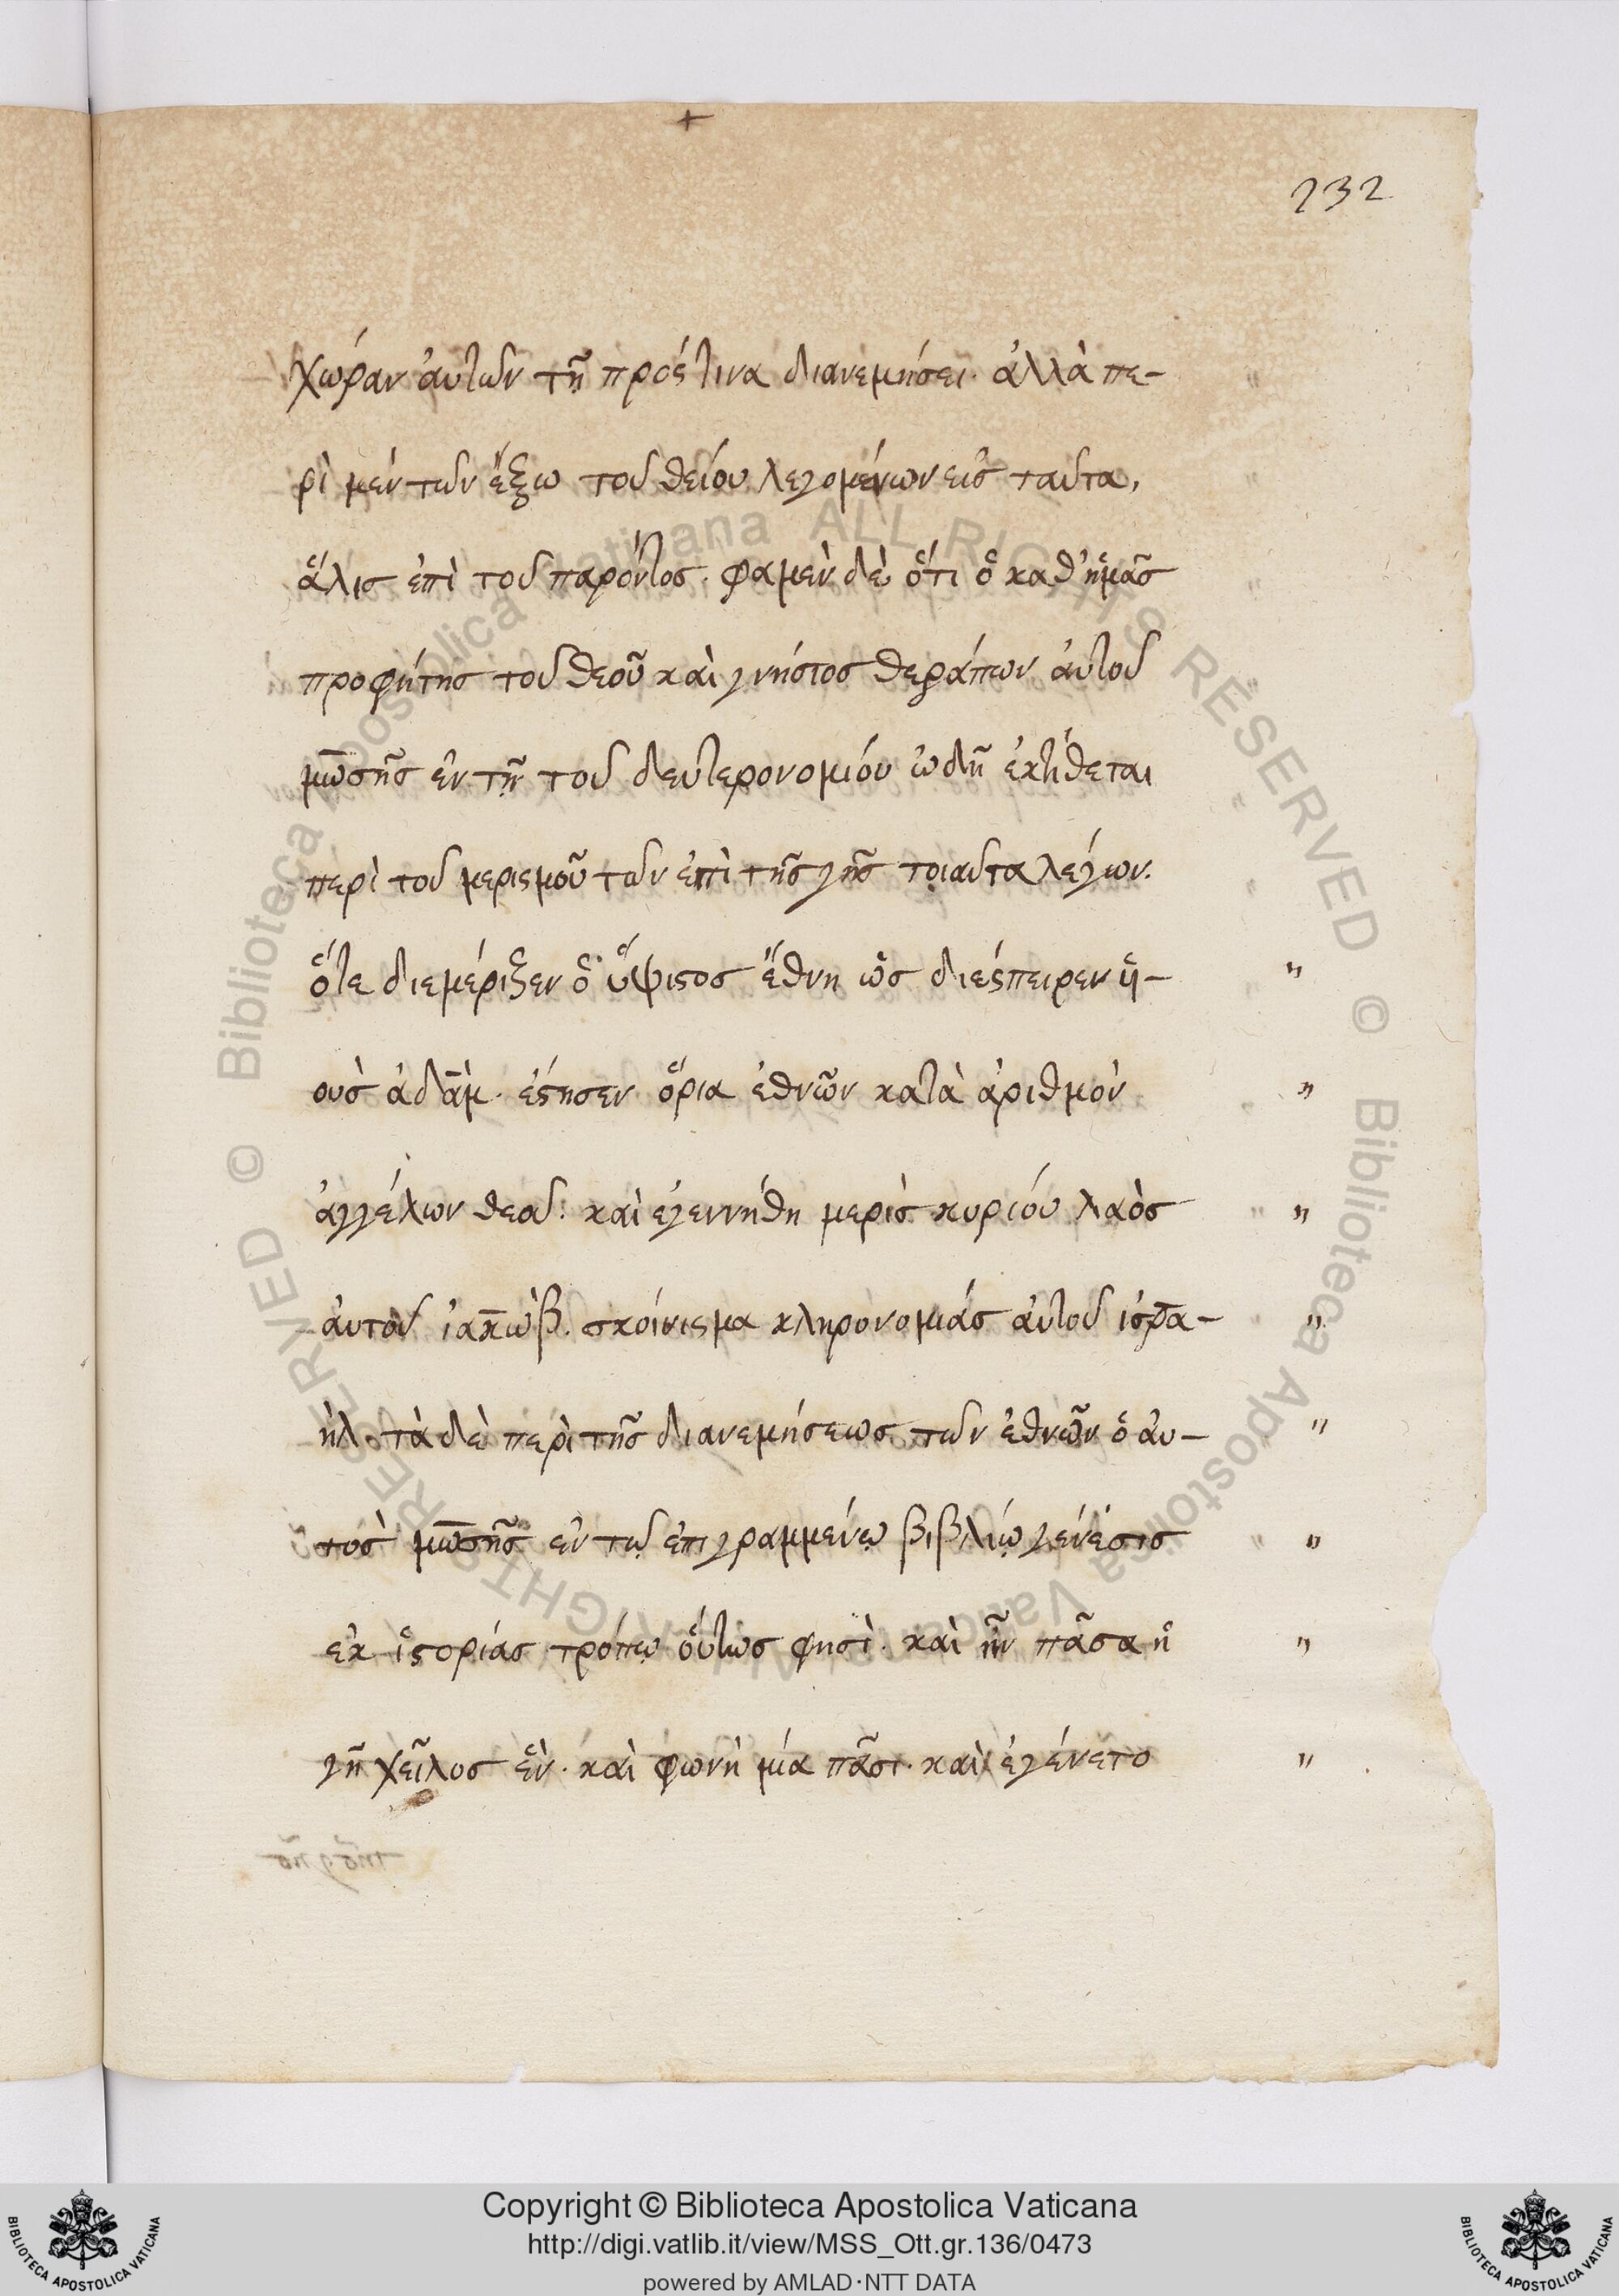 +
232
χώραν ἀυτῶν τῇ πρόςτινα διανεμήσει. ἀλλὰ πε-
ρὶ μὲν τῶν ἔξω τοῦ θείου λεγομένων εἰσ ταῦτα,
ἅλισ ἐπὶ τοῦ παρόντος. φαμὲν δὲ ὅτι ὁ καθ' ἡμᾶσ
προφήτης τοῦ θεοῦ καὶ γνήσιος θεράπων ἀυτοῦ
μωσῆς ἐν τῇ τοῦ δευτερονομίου ὠδῇ ἐκτίθεται
περὶ τοῦ μερισμοῦ τῶν ἐπὶ τῆς γῆς τοιαῦτα λέγων.
ὅτε διεμέριζεν ὁ ὕψιστος ἔθνη ὡς διέσπειρεν υἱ-
οὺσ ἀδὰμ. ἔστησεν ὅρια ἐθνῶν κατὰ ἀριθμὸν
ἀγγέλων θεοῦ: καὶ ἐγεννήθη μερὶσ κυρίου λαὸσ
ἀυτοῦ ἰακὼβ. σχοίνισμα κληρονομίάσ ἀυτοῦ ἰσρα-
ήλ. τὰ δὲ περὶ τῆς διανεμήσεωσ τῶν ἐθνῶν ὁ ἀυ-
τοσ μωσῆς ἐν τῷ ἐπιγραμμένῳ βιβλίῳ γένέσισ
ἐκ ἱστορίας τρόπῳ οὕτως φησὶ. καὶ ἦν πᾶσα ἡ
γῆ χεῖλοσ ἓν. καὶ φωνὴ μία πᾶσι. καὶ ἐγένετο
Copyright © Biblioteca Apostolica Vaticana
http://digi.vatlib.it/view/MSS_Ott.gr.136/0473
powered by AMLAD·NTT DATA
BIBLIOTECA APOSTOLICA VATICANA
BIBLIOTECA APOSTOLICA VATICANA
© Biblioteca Apostolica Vaticana ALL RIGHTS RESERVED © Biblioteca Apostolica Vaticana ALL RIGHTS RESERVED